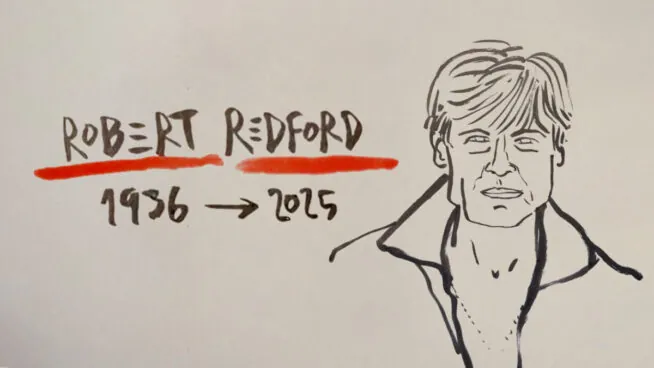 ROBERT REDFORD
1936 → 2025